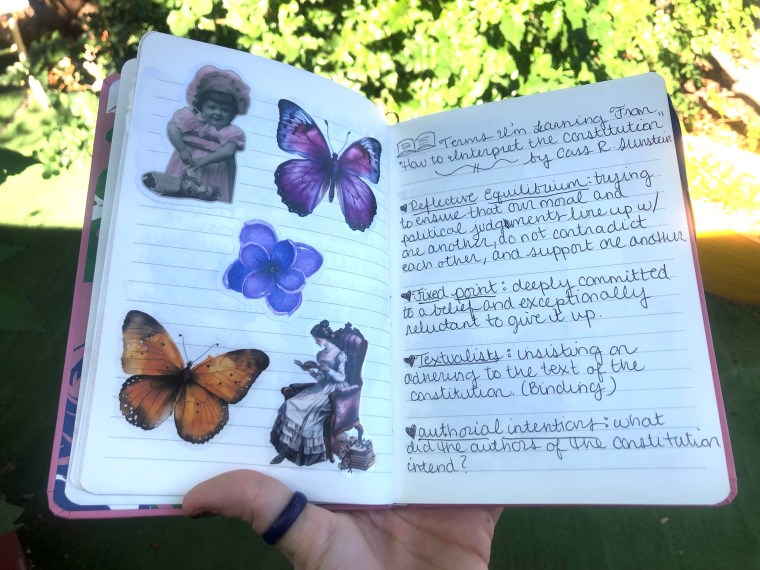 Terms I'm Learning From
"How to Interpret the Constitution"
by Cass R. Sunstein
♥Reflective Equilibuium: trying
to ensure that our moral and
political judgements line up w/
one another, do not contradict
each other, and support one another
♥Fixed point: deeply committed
to a belief and exceptionally
reluctant to give it up.
♥Textualists: insisting on
adhering to the text of the
constitution. (Binding.)
♥authorial intentions: what
did the authors of the constitution
intend?